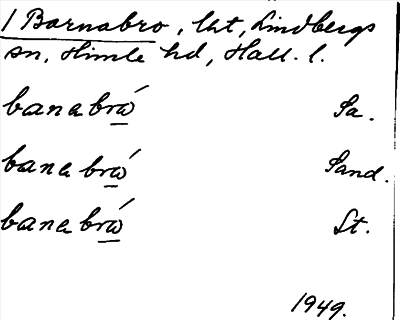 1 Barnabro, lht, Lindbergs
sn, Himle hd, Hall. l.
banabrώ Sa.
banabrώ Sand.
banabrώ St.
1949.